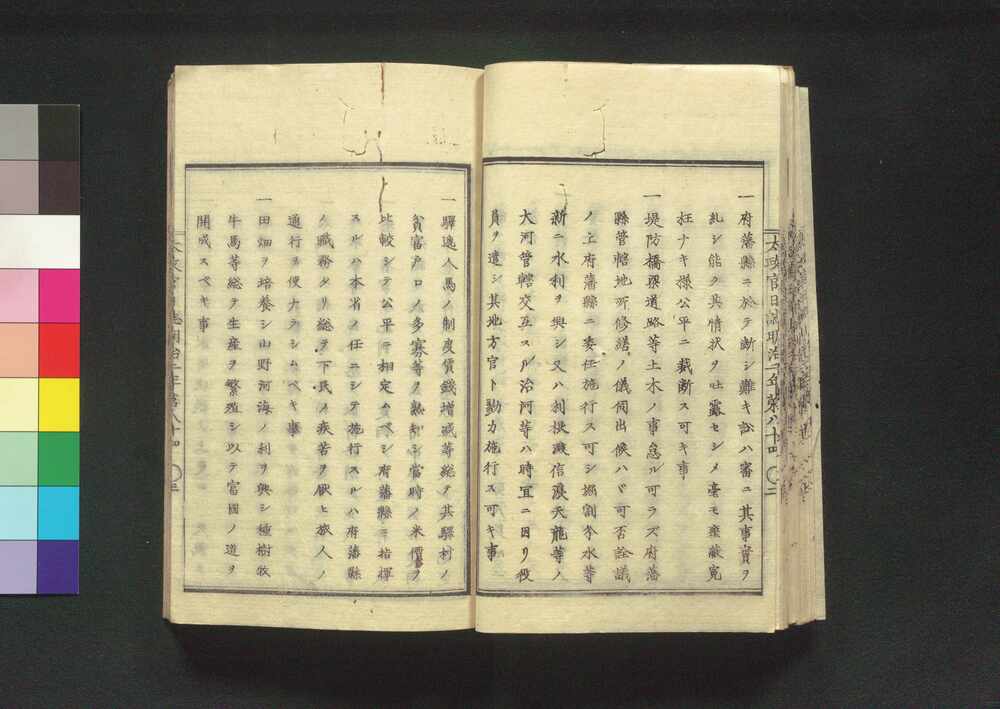 一府藩縣ニ於テ斷シ難キ訟ハ審ニ其事實ヲ
糺シ能ク其情状ヲ吐露セシメ毫モ壅蔽寃
枉ナキ樣公平ニ裁斷ス可キ事
一堤防橋梁道路等土木ノ事怠ル可ラズ府藩
縣管轄地所修繕ノ儀伺出候ハヾ可否詮議
ノ上府藩縣ニ委任施行ス可シ堀割分水等
新ニ水利ヲ興シ又ハ利根澱信濃天龍等ノ
大河管轄交互スル治河等ハ時宜ニ因リ役
員ヲ遣シ其地方官ト勠力施行ス可キ事
太政官日誌明治二年第八十四 〇二
一驛遞人馬ノ制度賃錢增减等総テ其驛村ノ
貧富戸口ノ多寡等ヲ熟知シ當時ノ米價ヲ
比較シテ公平ニ相定ムベシ府藩縣ニ指揮
スルハ本省ノ任ニシテ施行スルハ府藩縣
ノ職務タリ総テ下民ノ疾苦ヲ厭ヒ旅人ノ
通行ヲ便ナラシムベキ事
一田畑ヲ培養シ山野河海ノ利ヲ興シ種樹牧
牛馬等総テ生産ヲ繁殖シ以テ富國ノ道ヲ
開成スベキ事